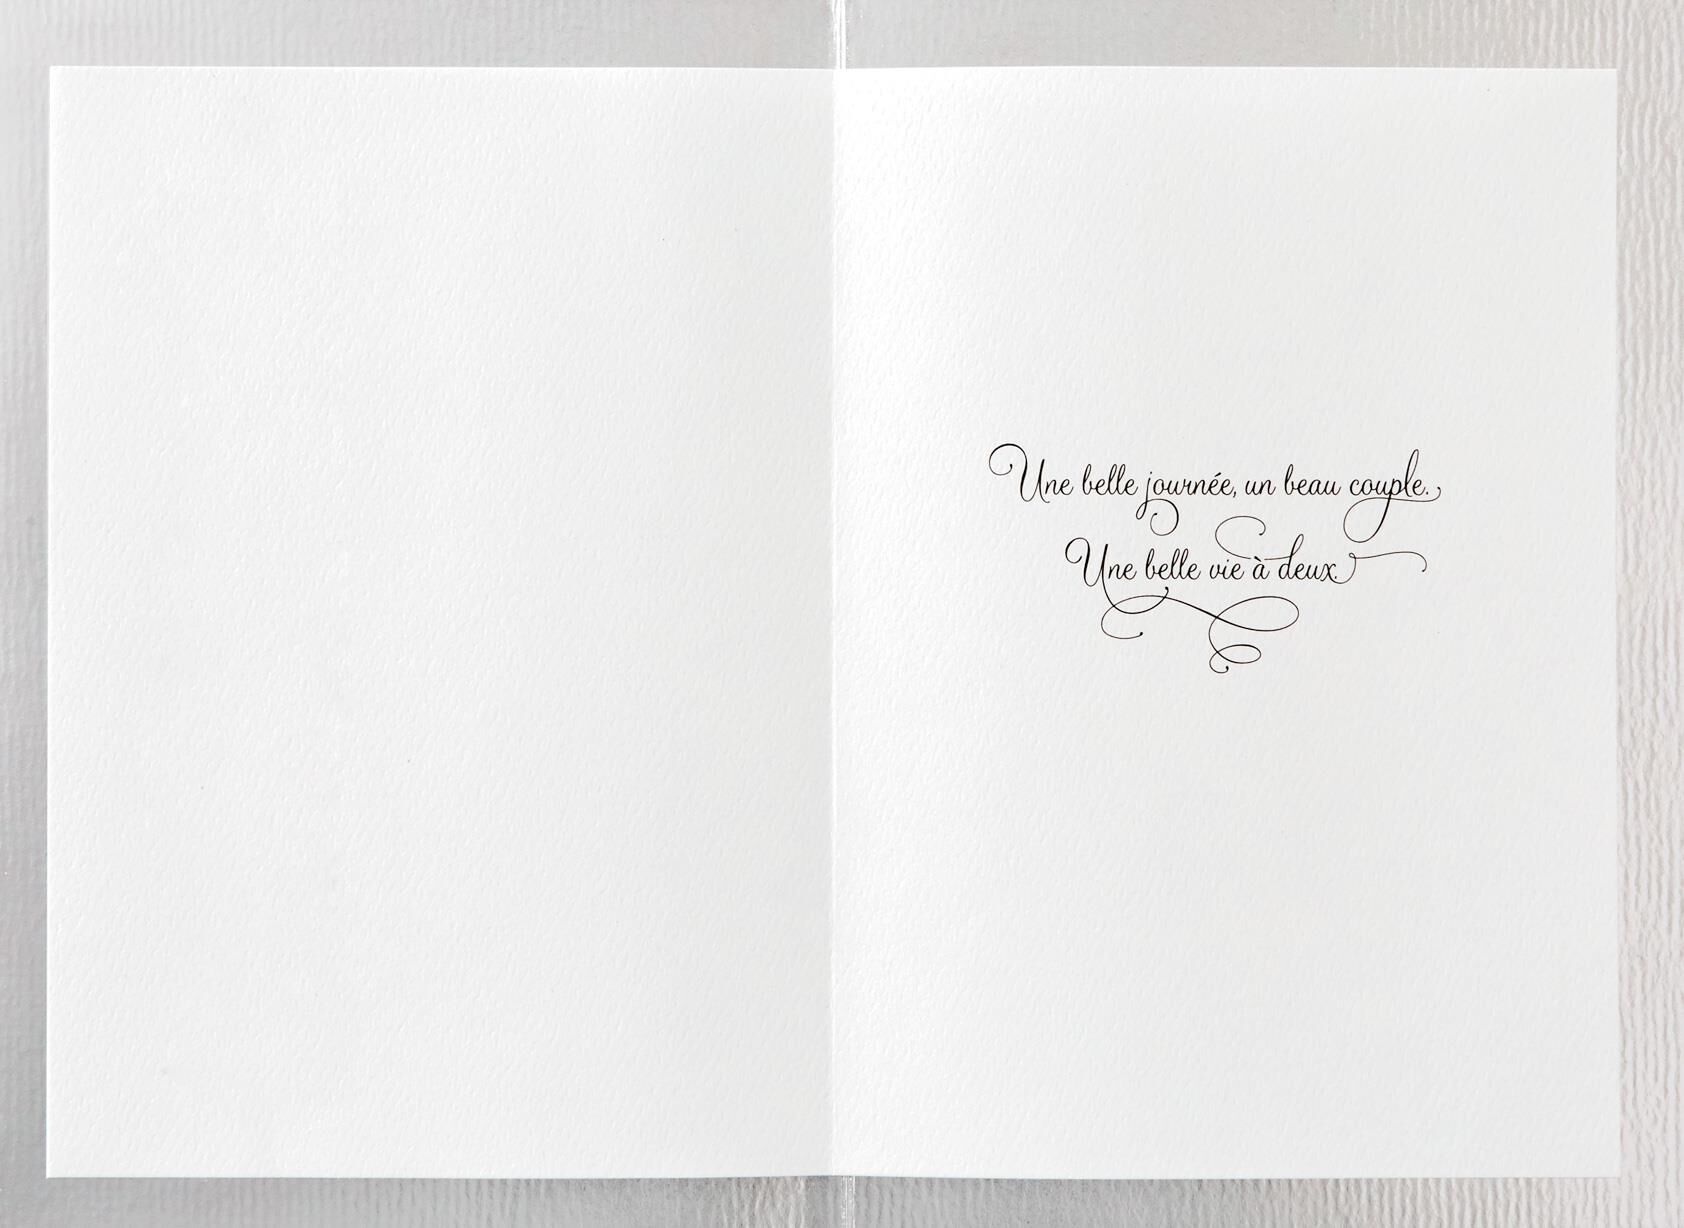 Une belle journée, un beau couple.
Une belle vie à deux.